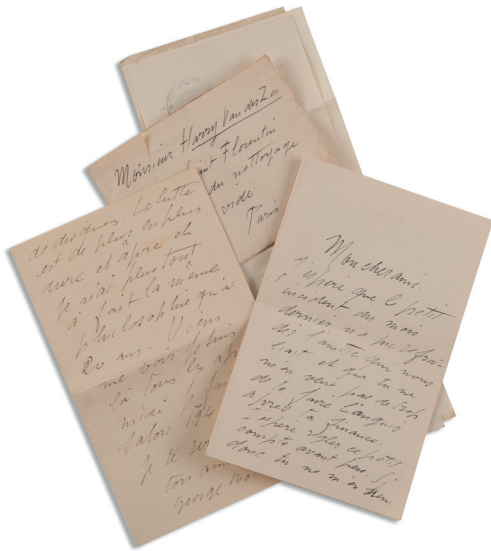 Monsieur Harry Van der Zee
Florentin
du nettoyage
vide
Paris
de disques La lutte
est de plus en plus
dure et âpre et
je n'ai plus tout
à fait la même
philosophie qu'à
20 ans. Viens
me voir plus
là tous les
midi
Salon 194
Je te
ton ami
George
Mon cher ami,
J'espère que le petit
incident du mois
dernier n'a pas
dit l'amitié qui nous
liait et que tu ne
m'en veux pas de trop
de te faire languir
après ta finance
J'espère régler ce petit
compte avant peu. Si
donc tu ne m'en